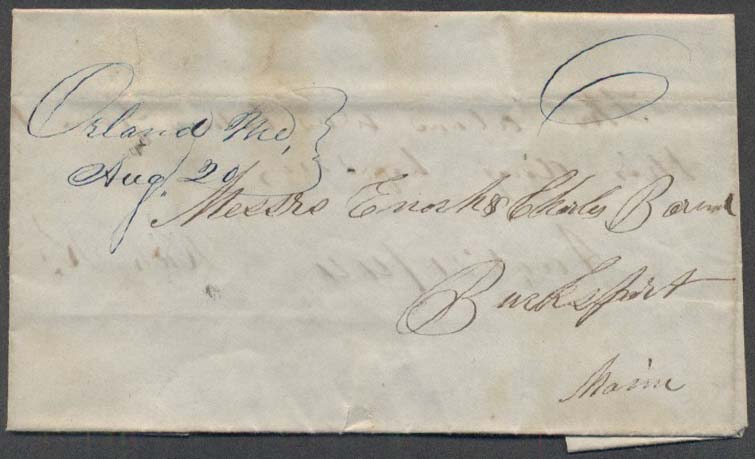 6
Orland Me,
Aug. 29
Messrs Enoch & Charles
Bucksport
Maine